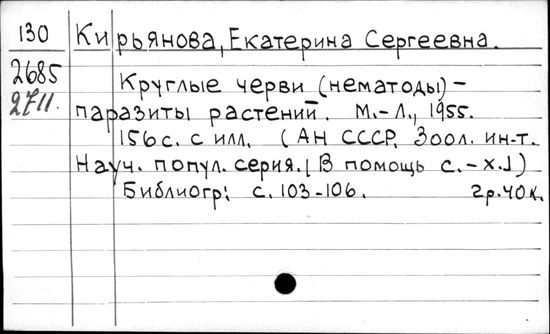 130 Кирьянова, Екатерина Сергеевна.
2685 Круглые черви (нематоды) –
2711. паразиты растений. М.-Л., 1955.
156 с. с илл. (АН СССР, Зоол. ин-т.
Науч. попул. серия. [В помощь с.-х.])
Библиогр: с. 103-106. 2р. 40 к.